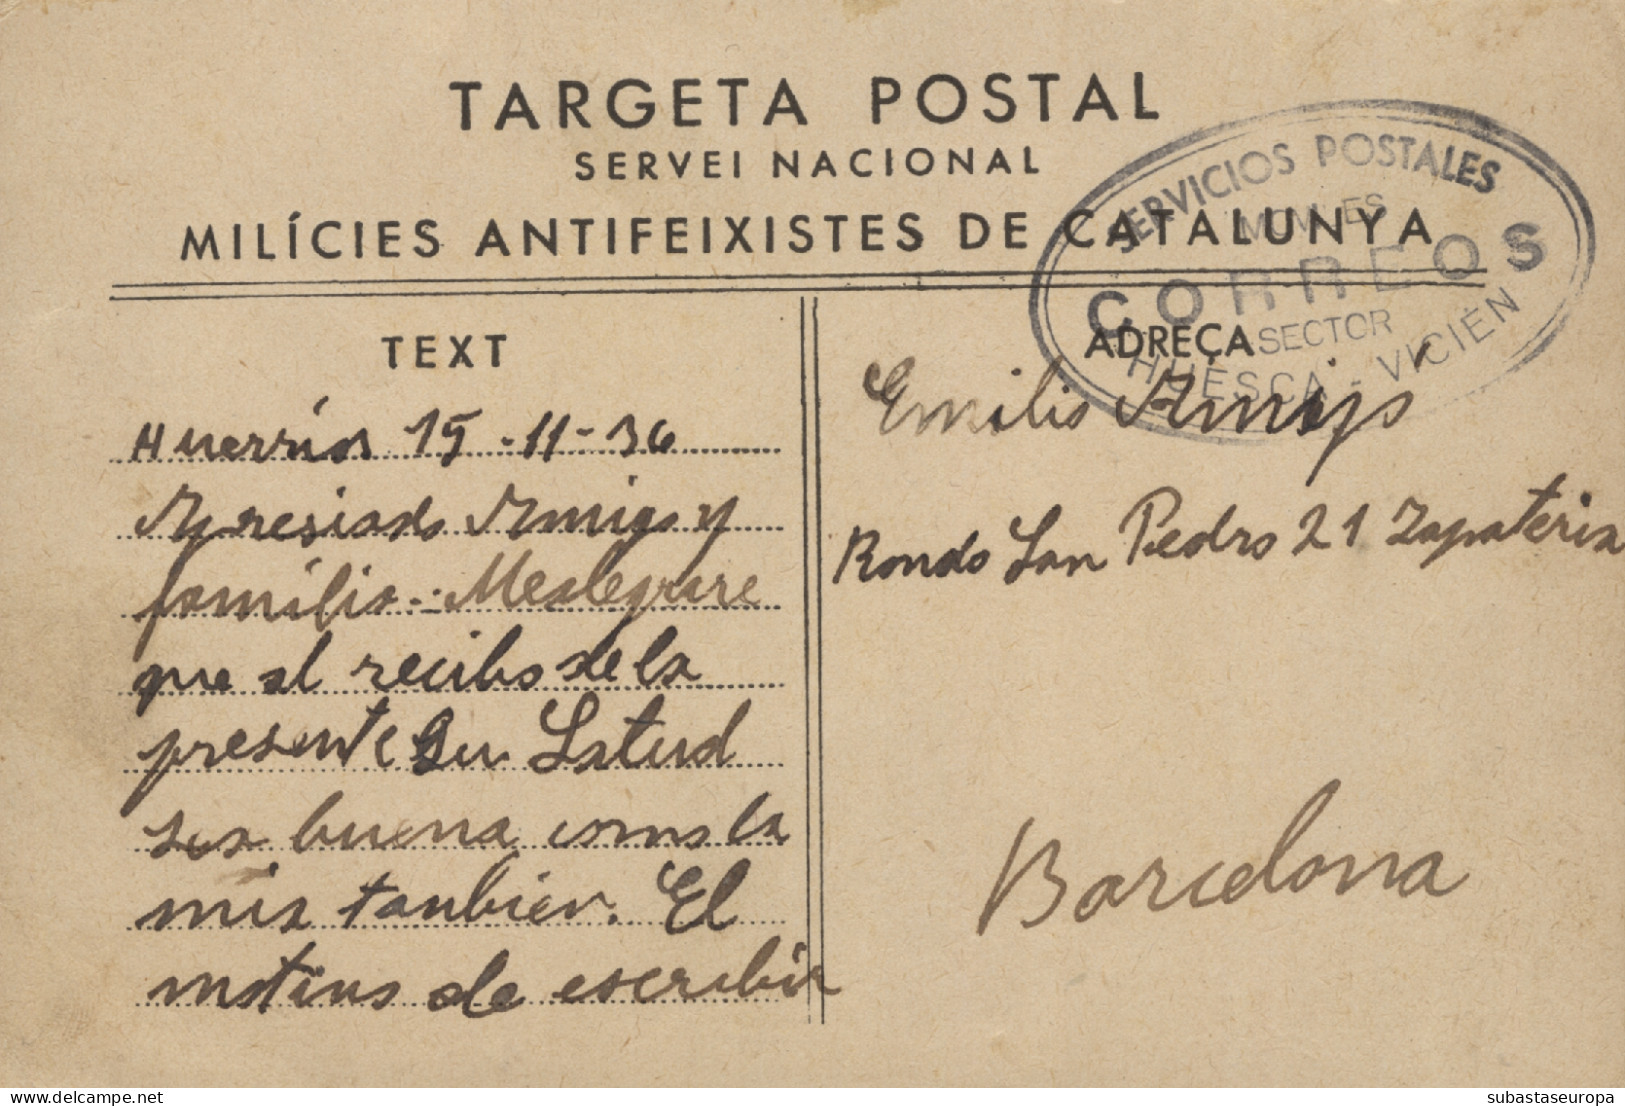 TARGETA POSTAL
SERVEI NACIONAL
MILÍCIES ANTIFEIXISTES DE CATALUNYA
SERVICIOS POSTALES
MOVILES
CORREOS
SECTOR
HUESCA - VICIÉN
TEXT
Huerrios 15-11-36
Apresiado Amigo y
familia.: Mealegrare
que al recibo de la
presente su Satud
sea buena como la
mia tanbien. El
motivo de escribir
ADREÇA
Emilio Amigo
Rondo San Pedro 21 Zapateria
Barcelona
delcampe.net
subastaseuropa